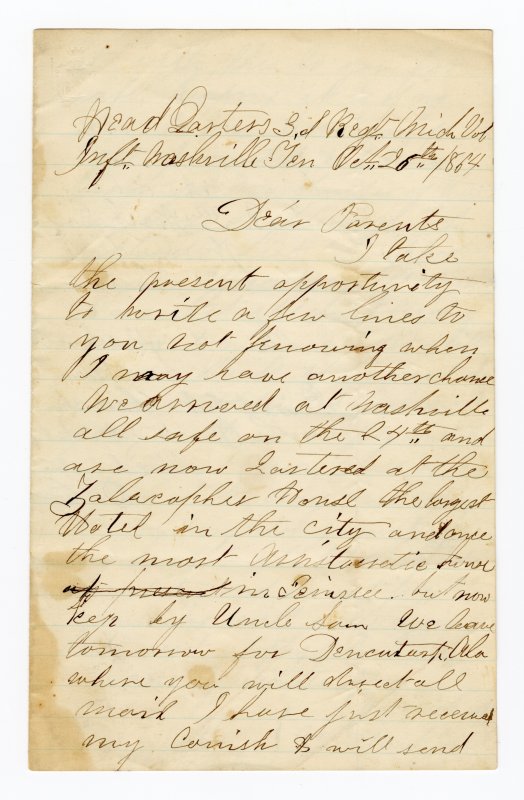 Head Qarters 3,d Regt Mich Vol
Inft. Nashville Ten Oct. 26th /1864
Dear Parents
I take
the present opportunity
to write a few lines to
you not knowing when
I may have another chance
We arrieved at Nashville
all safe on the 24th and
are now Qartered at the
House the largest
Hotel in the city and once
the most
in but now
kep by Uncle Sam We leave
tomorrow for Ala
where you will direct all
mail I have just received
my & will send